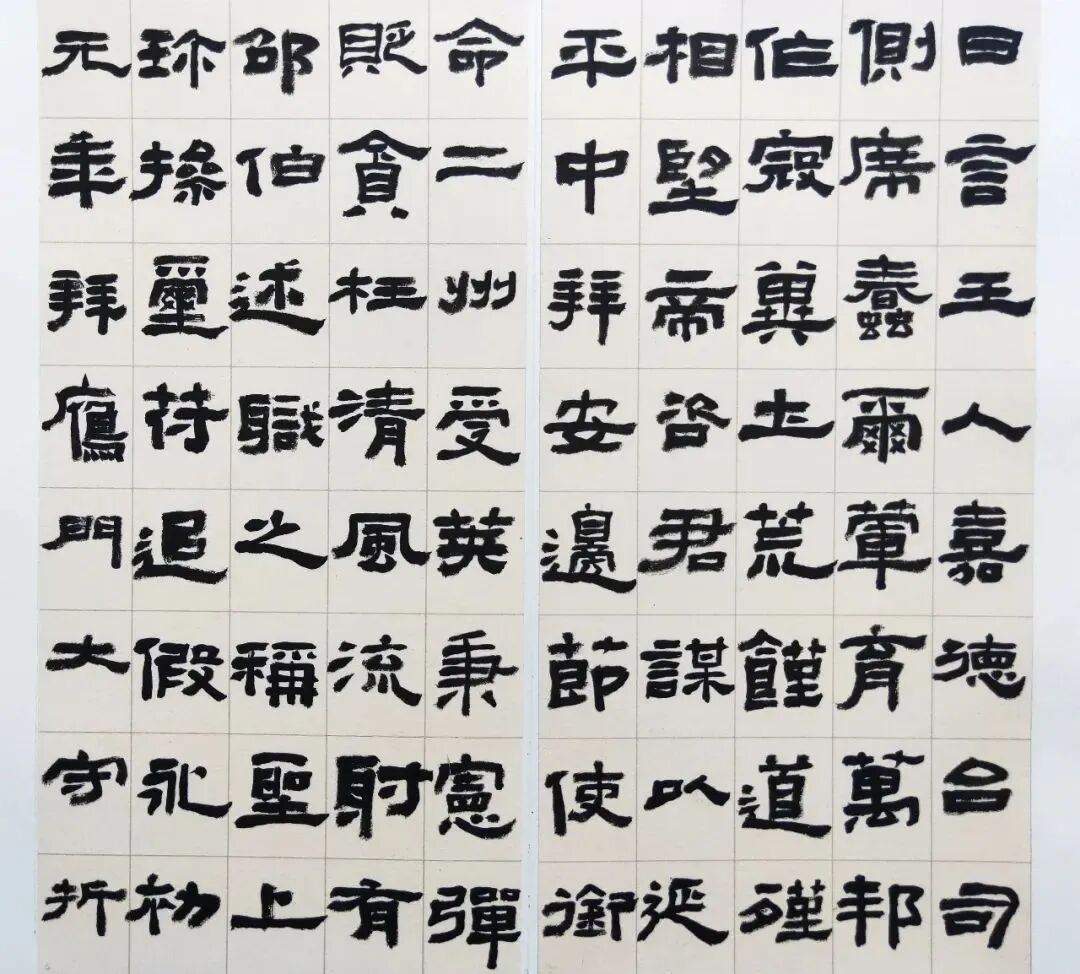 曰言王人嘉德台司
側席蠢爾葷育萬邦
作寇冀土荒饉道殣
相望帝咨君謀以延
平中拜安邊節使銜
命二州受莢秉憲彈
貶貪枉清風流射有
邵伯述職之稱聖上
珎操璽苻追假永初
元年拜鴈門大守折